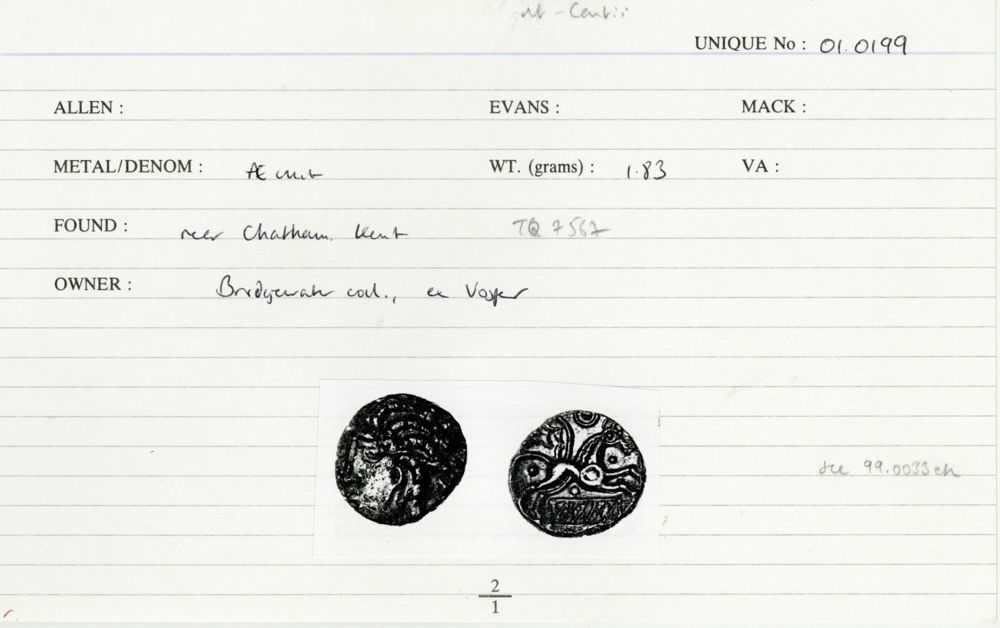 UNIQUE No : 01.0199
ALLEN : EVANS : MACK :
METAL/DENOM : Æ unit WT. (grams) : 1.83 VA :
FOUND : near Chatham. Kent TQ 7567
OWNER : Bridgewater coll., ex Vosper
see 99.0033
2
1